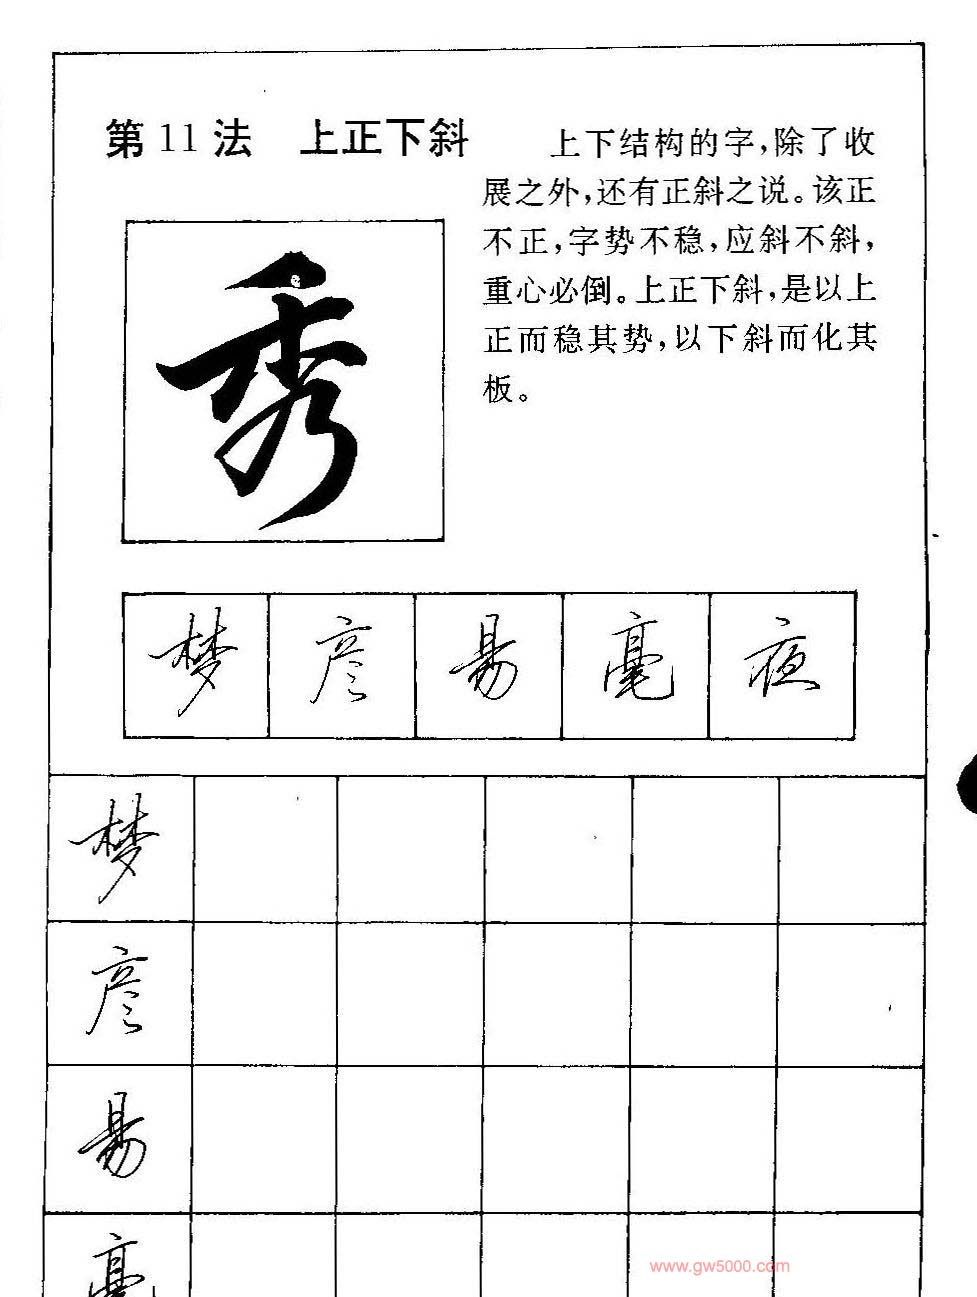 第11法 上正下斜
上下结构的字,除了收
展之外,还有正斜之说。该正
不正,字势不稳,应斜不斜,
重心必倒。上正下斜,是以上
正而稳其势,以下斜而化其
板。
秀
梦 彦 易 毫 夜
梦
彦
易
毫
www.gw5000.com